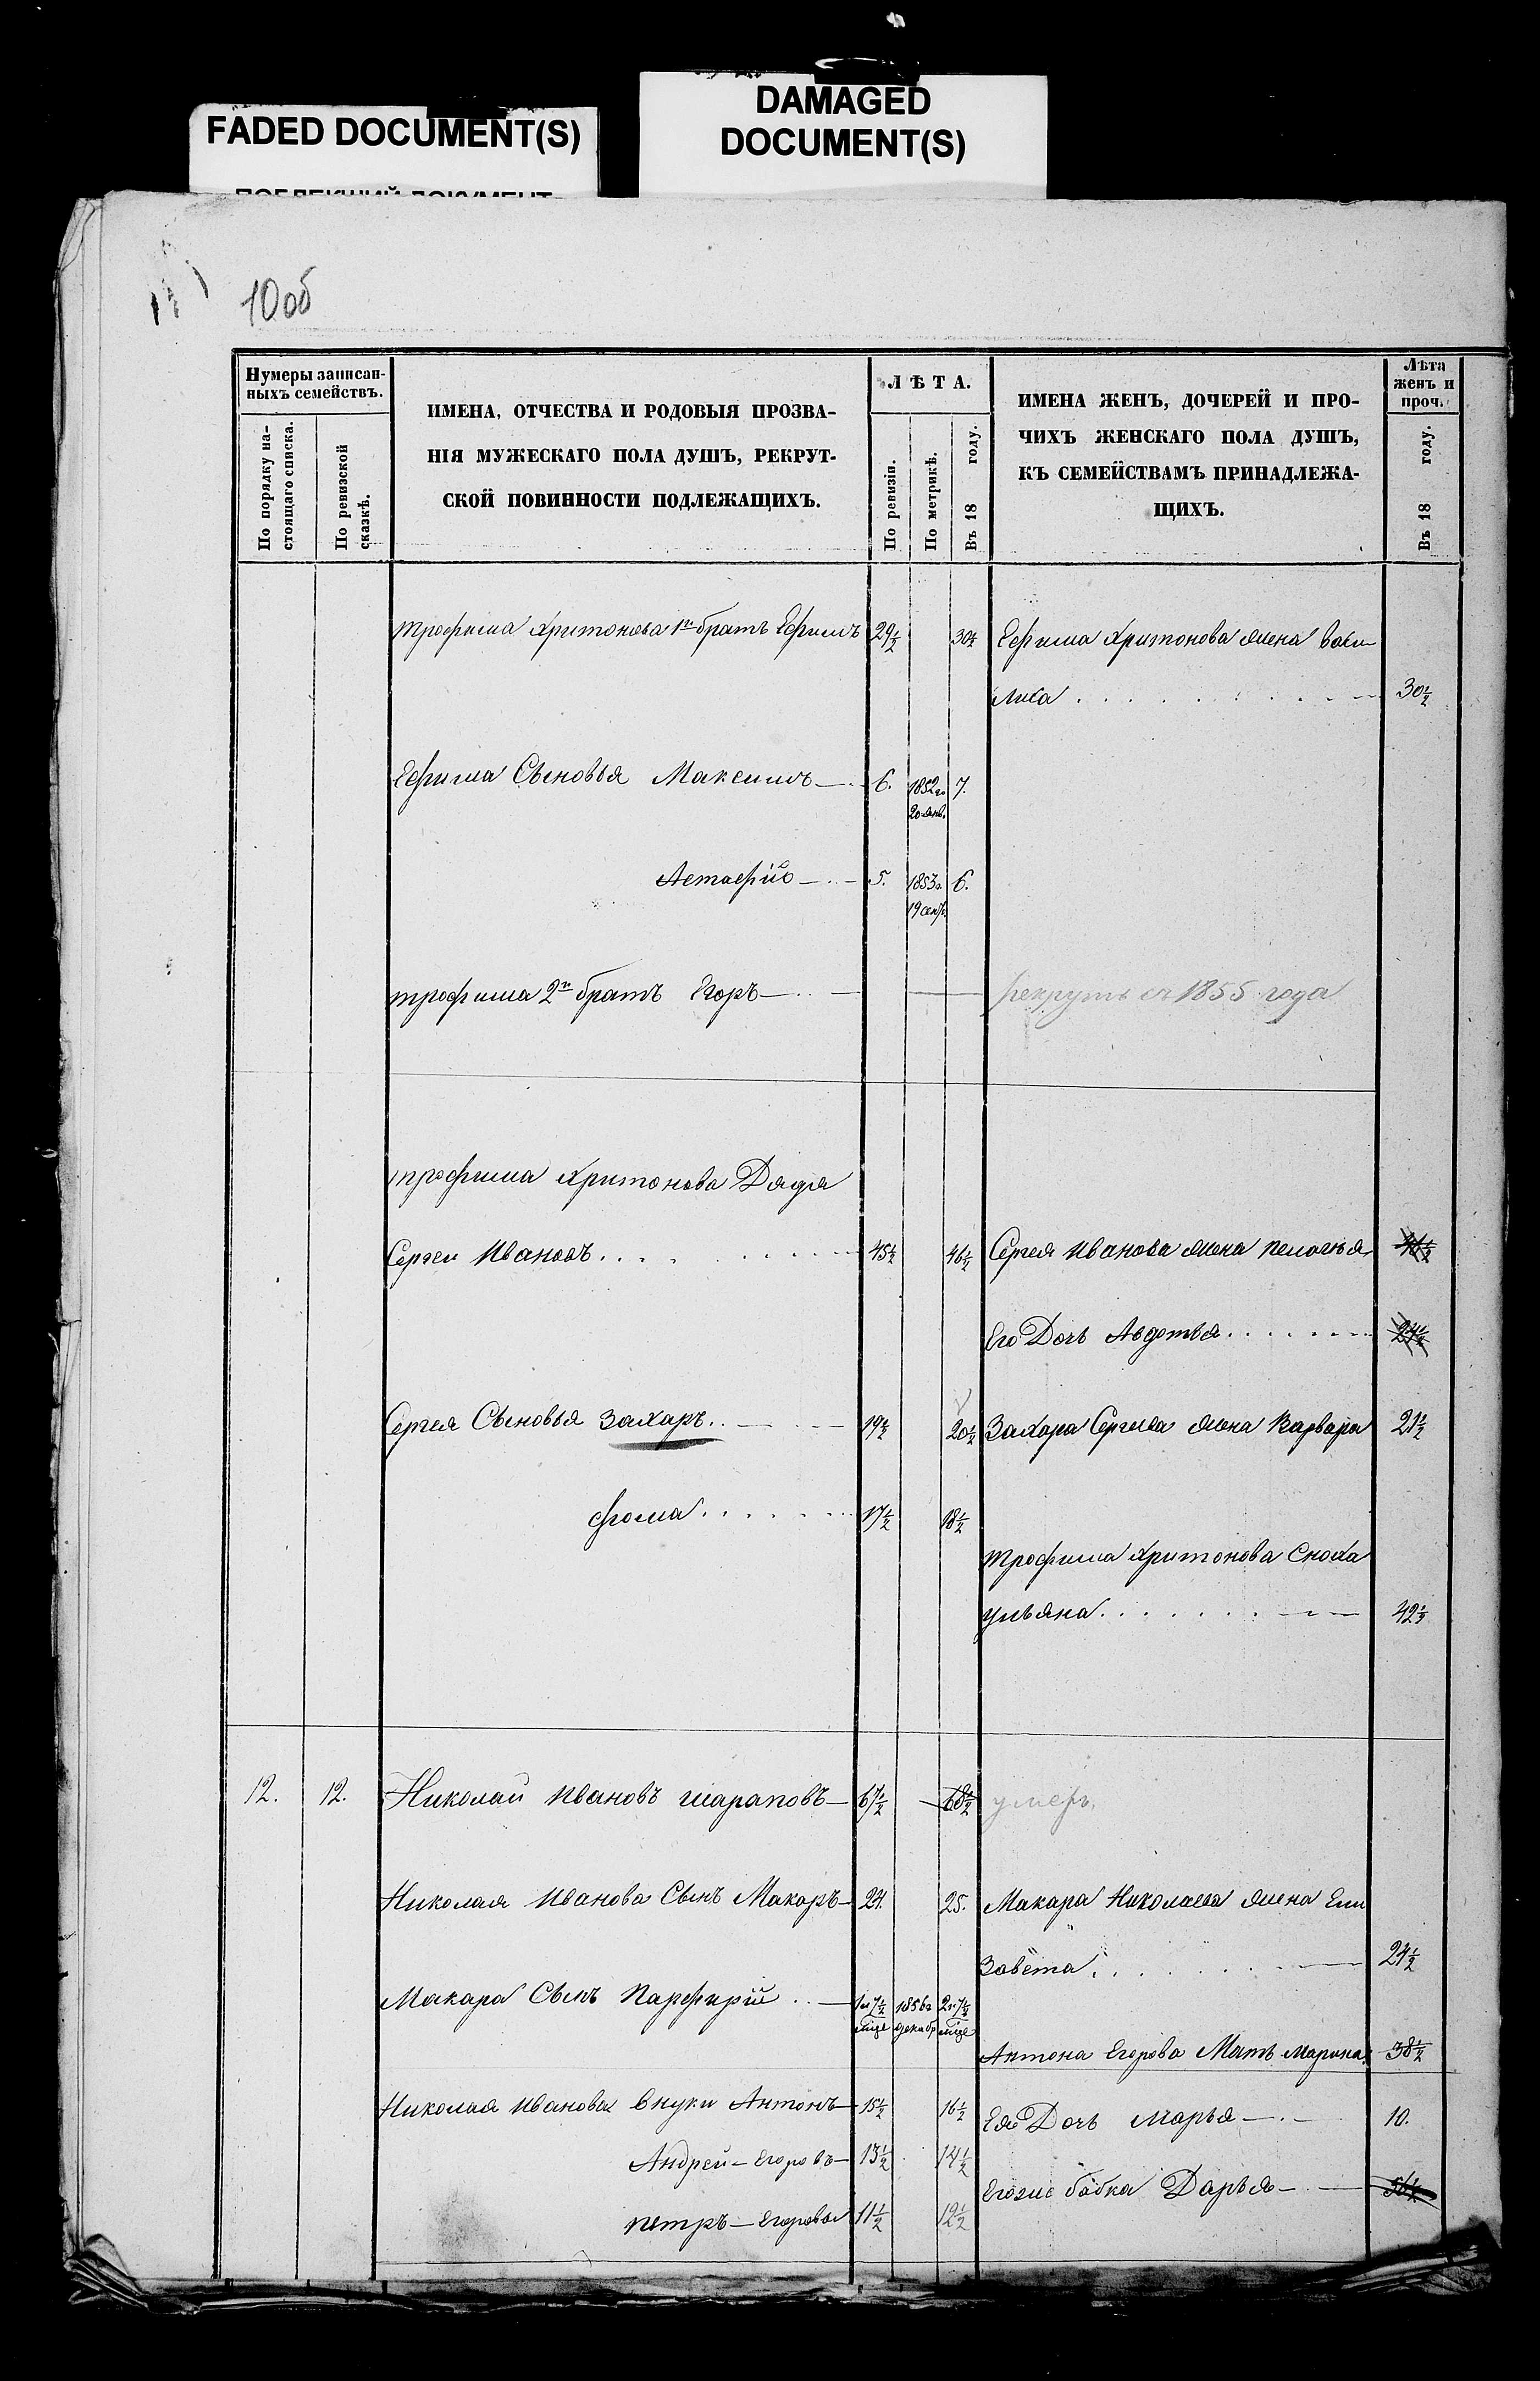 FADED DOCUMENT(S)
DAMAGED
DOCUMENT(S)
10об
Нумеры записан-
ныхъ семействъ.
По порядку на-
стоящаго списка.
По ревизской
сказкѣ.
ИМЕНА, ОТЧЕСТВА И РОДОВЫЯ ПРОЗВА-
НІЯ МУЖЕСКАГО ПОЛА ДУШЪ, РЕКРУТ-
СКОЙ ПОВИННОСТИ ПОДЛЕЖАЩИХЪ.
ЛѢТА.
По ревизіи.
По метрикѣ.
Въ 18 году.
ИМЕНА ЖЕНЪ, ДОЧЕРЕЙ И ПРО-
ЧИХЪ ЖЕНСКАГО ПОЛА ДУШЪ,
КЪ СЕМЕЙСТВАМЪ ПРИНАДЛЕЖА-
ЩИХЪ.
Лѣта
женъ и
проч.
Въ 18 году.
Трофима Хритонова 1й братъ Ефимъ 29½ 30½ Ефима Хритонова жена Васи
лиса 30½
Ефима Сыновья Максимъ 6. 1852го 7.
20 янв.
Астафій 5. 1853го 6.
19 сент.
Трофима 2й братъ Егоръ рекрутъ съ 1855 года
Трофима Хритонова Дядя
Сергей Ивановъ 45½ 46½ Сергея Иванова жена Пелагѣя
Его Дочь Авдотья 24½
Сергея Сыновья Захаръ 19½ 20½ Захара Сергеева жена Варвара 21½
Фома 17½ 18½
Трофима Хритонова Сноха
Ульяна 42½
12. 12. Николай Ивановъ Шараповъ 67½ 68½ умеръ.
Николая Иванова Сынъ Макаръ 24. 25. Макара Николаева жена Ели
завета 24½
Макара Сынъ Парфирій 1 и 7½ 1856го 2 и 7½
мѣце декабр мѣце
Антона Егорова Мать Марина 38½
Николая Иванова Внуки Антонъ 15½ 16½
Ея Дочь Марья 10.
Андрей Егоровъ 13½ 14½
Егоже бабка Дарья 56½
Петръ Егоровъ 11½ 12½